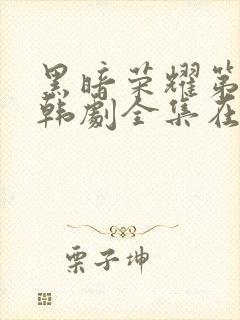 黑暗荣耀第
韩剧全集在
栗子坤